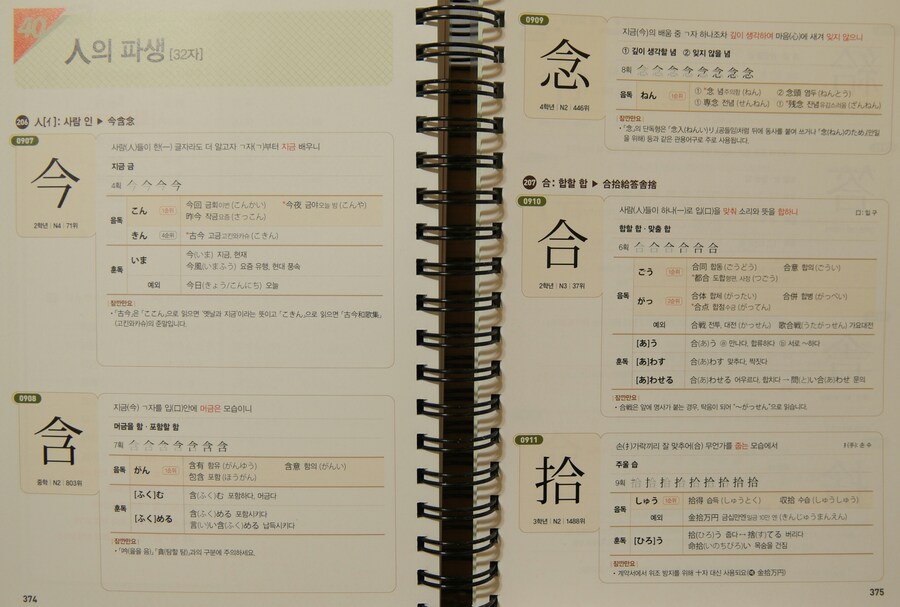 40
人의 파생 [32자]
206 人[亻]: 사람 인 ▶ 今含念
0907
今
2학년 | N4 | 71위
사람(人)들이 한(一) 글자라도 더 알고자 ㄱ자(ㄱ)부터 지금 배우니
지금 금
4획
음독 こん 今回 금회이번 (こんかい) 今夜 금야오늘 밤 (こんや)
昨今 작금요즘 (さっこん)
きん 古今 고금고킨와카슈 (こきん)
훈독 いま 今(いま) 지금, 현재
今風(いまふう) 요즘 유행, 현대 풍속
예외 今日(きょう/こんにち) 오늘
잠깐만요
• 「古今」은 「ここん」으로 읽으면 '옛날과 지금'이라는 뜻이고 「こきん」으로 읽으면 「古今和歌集」
(고킨와카슈)의 준말입니다.
0908
含
중학 | N2 | 803위
지금(今) ㄱ자를 입(口)안에 머금은 모습이니
머금을 함 · 포함할 함
7획
음독 がん 含有 함유 (がんゆう) 含意 함의 (がんい)
包含 포함 (ほうがん)
훈독 [ふく]む 含(ふく)む 포함하다, 머금다
[ふく]める 含(ふく)める 포함시키다
言(い)い含(ふく)める 납득시키다
잠깐만요
374
0909
念
4학년 | N2 | 446위
지금(今)의 배움 중 ㄱ자 하나조차 깊이 생각하여 마음(心)에 새겨 잊지 않으니
① 깊이 생각할 념 ② 잊지 않을 념
8획
음독 ねん ① 念 념주의함 (ねん) ② 念頭 염두 (ねんとう)
① 専念 전념 (せんねん) ① 残念 잔념유감스러움 (ざんねん)
잠깐만요
• 「念」의 단독형은 「念入(ねんい)り」(공들임)처럼 뒤에 동사를 붙여 쓰거나 「念(ねん)のため」(만일
을 위해) 등과 같은 관용어구로 주로 사용됩니다.
207 合: 합할 합 ▶ 合拾給答舎捨
0910
合
2학년 | N3 | 37위
사람(人)들이 하나(一)로 입(口)을 맞춰 소리와 뜻을 합하니
口: 입 구
합할 합 · 맞출 합
6획
음독 ごう 合同 합동 (ごうどう) 合意 합의 (ごうい)
都合 도합형편, 사정 (つごう)
がっ 合体 합체 (がったい) 合併 합병 (がっぺい)
合点 합점수긍 (がってん)
예외 合戦 전투, 대전 (かっせん) 歌合戦(うたがっせん) 가요대전
훈독 [あ]う 合(あ)う ⓐ 만나다, 합류하다 ⓑ 서로 ~하다
[あ]わす 合(あ)わす 맞추다, 짝짓다
[あ]わせる 合(あ)わせる 어우르다, 합치다 → 問(と)い合(あ)わせ 문의
잠깐만요
• 合戦은 앞에 명사가 붙는 경우, 탁음이 되어 "~がっせん"으로 읽습니다.
0911
拾
3학년 | N2 | 1488위
손(扌)가락끼리 잘 맞추어(合) 무언가를 줍는 모습에서
扌(手): 손 수
주울 습
9획
음독 しゅう 拾得 습득 (しゅうとく) 収拾 수습 (しゅうしゅう)
예외 金拾万円 금십만엔일금 10만 엔 (きんじゅうまんえん)
훈독 [ひろ]う 拾(ひろ)う 줍다 ↔ 捨(す)てる 버리다
命拾(いのちびろ)い 목숨을 건짐
잠깐만요
• 계약서에서 위조 방지를 위해 十자 대신 사용되요 (예 金拾万円)
375